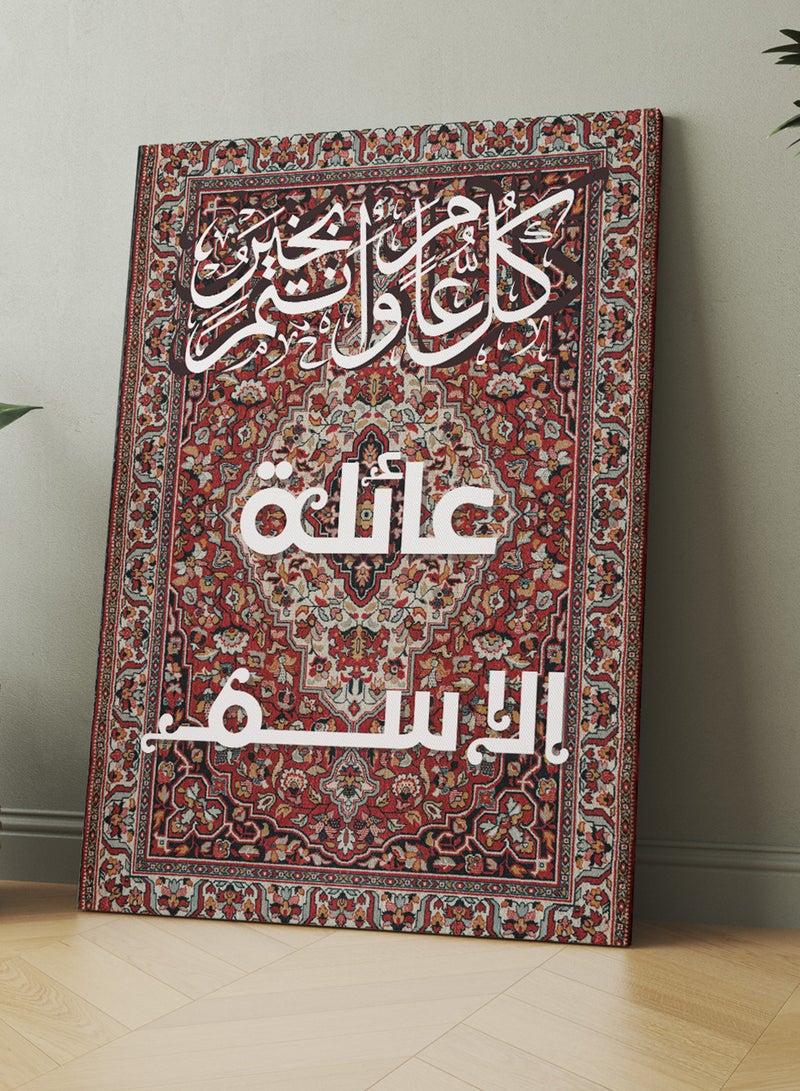 كُلُّ عَامٍ وَأَنتُم بِخَيْرٍ
عائلة
الإسم